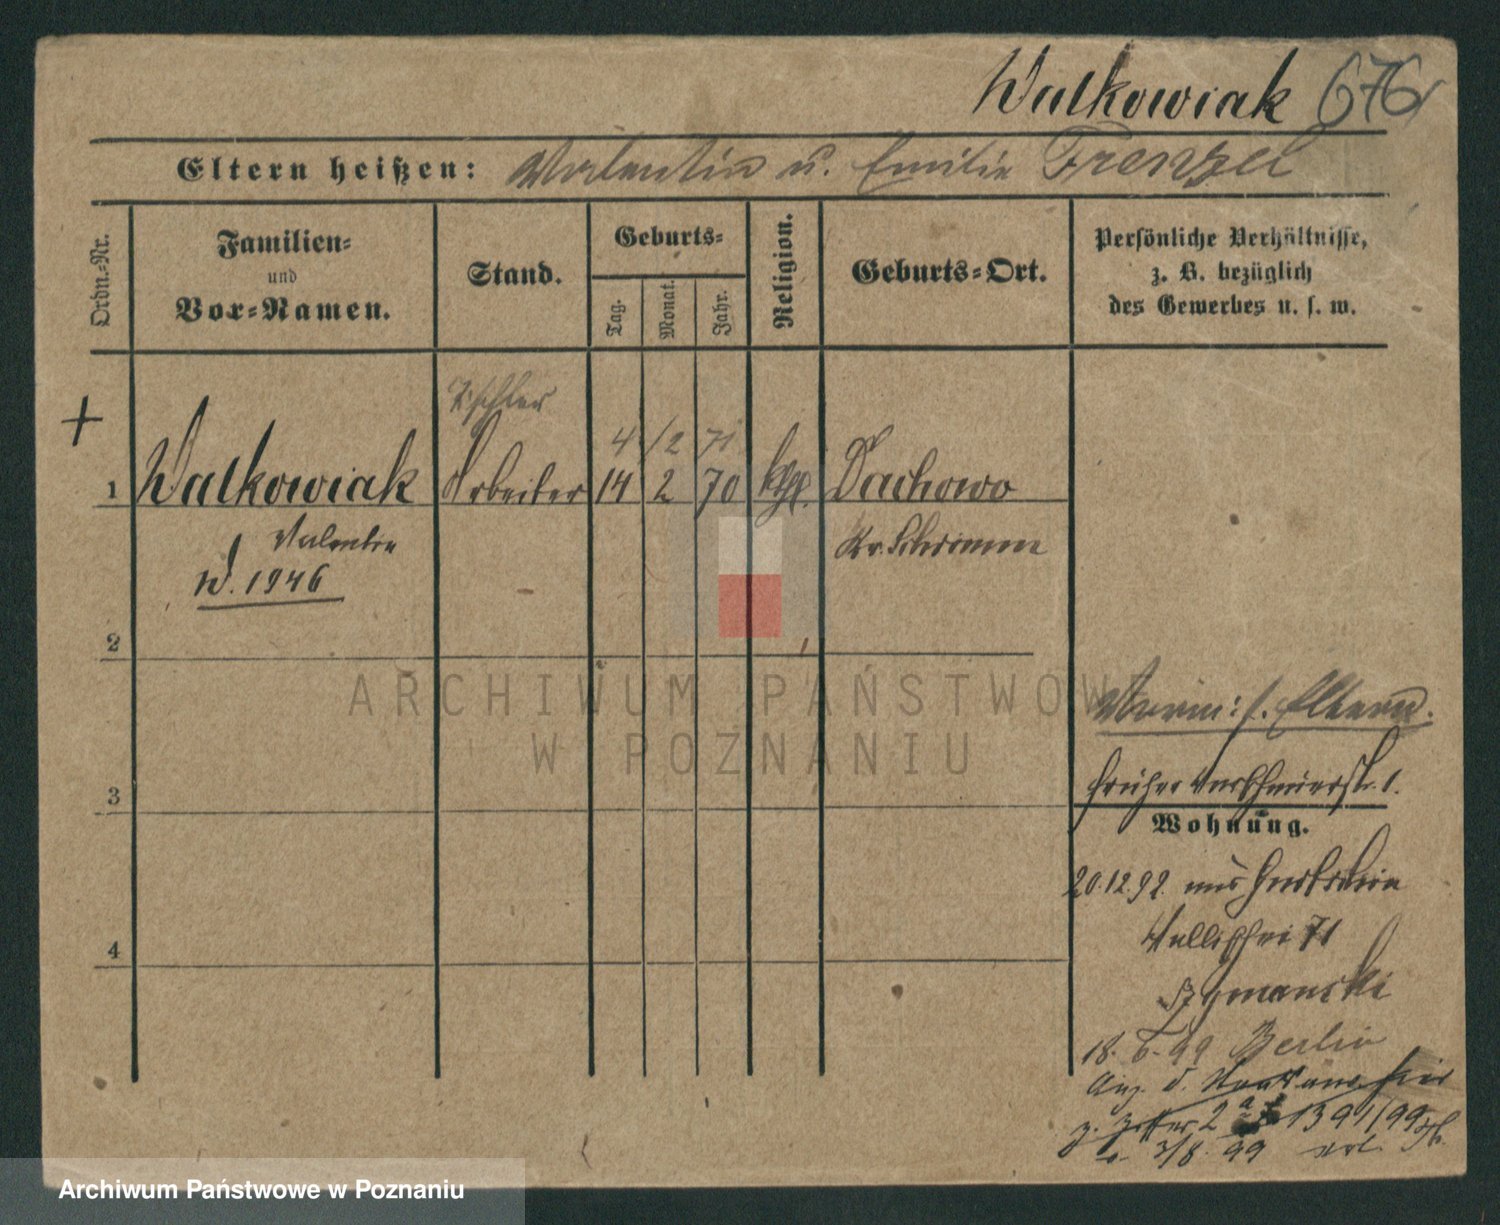 Walkowiak 676
Eltern heißen: Valentin u. Emilie Frenzel
Ordn.=Nr.
Familien=
und
Vor=Namen.
Stand.
Geburts=
Tag.
Monat.
Jahr.
Religion.
Geburts=Ort.
Persönliche Verhältnisse,
z. B. bezüglich
des Gewerbes u. s. w.
+
Tischler
4/2 71
1 Walkowiak Arbeiter 14 2 70 kth. Dachowo
Valentin
Kr. Schrimm
W. 1946
2
ARCHIWUM PAŃSTWOWE
W POZNANIU
: s. Eltern.
3
früher
Wohnung.
20.12.92. aus
Wallischei 71
4
Szymanski
18. 6. 99 Berlin
2 1391/99
3/8. 99
Archiwum Państwowe w Poznaniu